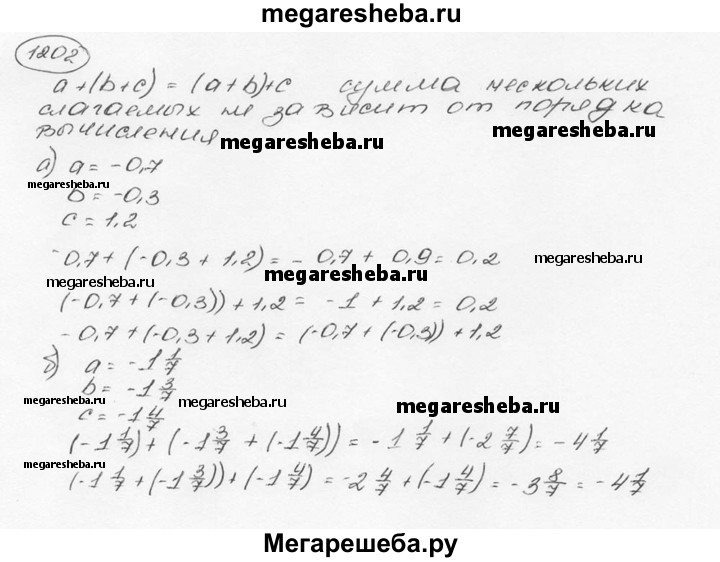 megaresheba.ru
1202
a+(b+c) = (a+b)+c сумма нескольких
слагаемых не зависит от порядка
вычисления
megaresheba.ru
megaresheba.ru
а) a = -0,7
megaresheba.ru
b = -0,3
c = 1,2
-0,7 + (-0,3 + 1,2) = -0,7 + 0,9 = 0,2
megaresheba.ru
megaresheba.ru
(-0,7 + (-0,3)) + 1,2 = -1 + 1,2 = 0,2
-0,7 + (-0,3 + 1,2) = (-0,7 + (-0,3)) + 1,2
б) a = -1 1/7
b = -1 3/7
megaresheba.ru
megaresheba.ru
megaresheba.ru
c = -1 4/7
(-1 1/7) + (-1 3/7 + (-1 4/7)) = -1 1/7 + (-2 7/7) = -4 1/7
megaresheba.ru
(-1 1/7 + (-1 3/7)) + (-1 4/7) = -2 4/7 + (-1 4/7) = -3 8/7 = -4 1/7
megaresheba.ru
Мегарешеба.ру